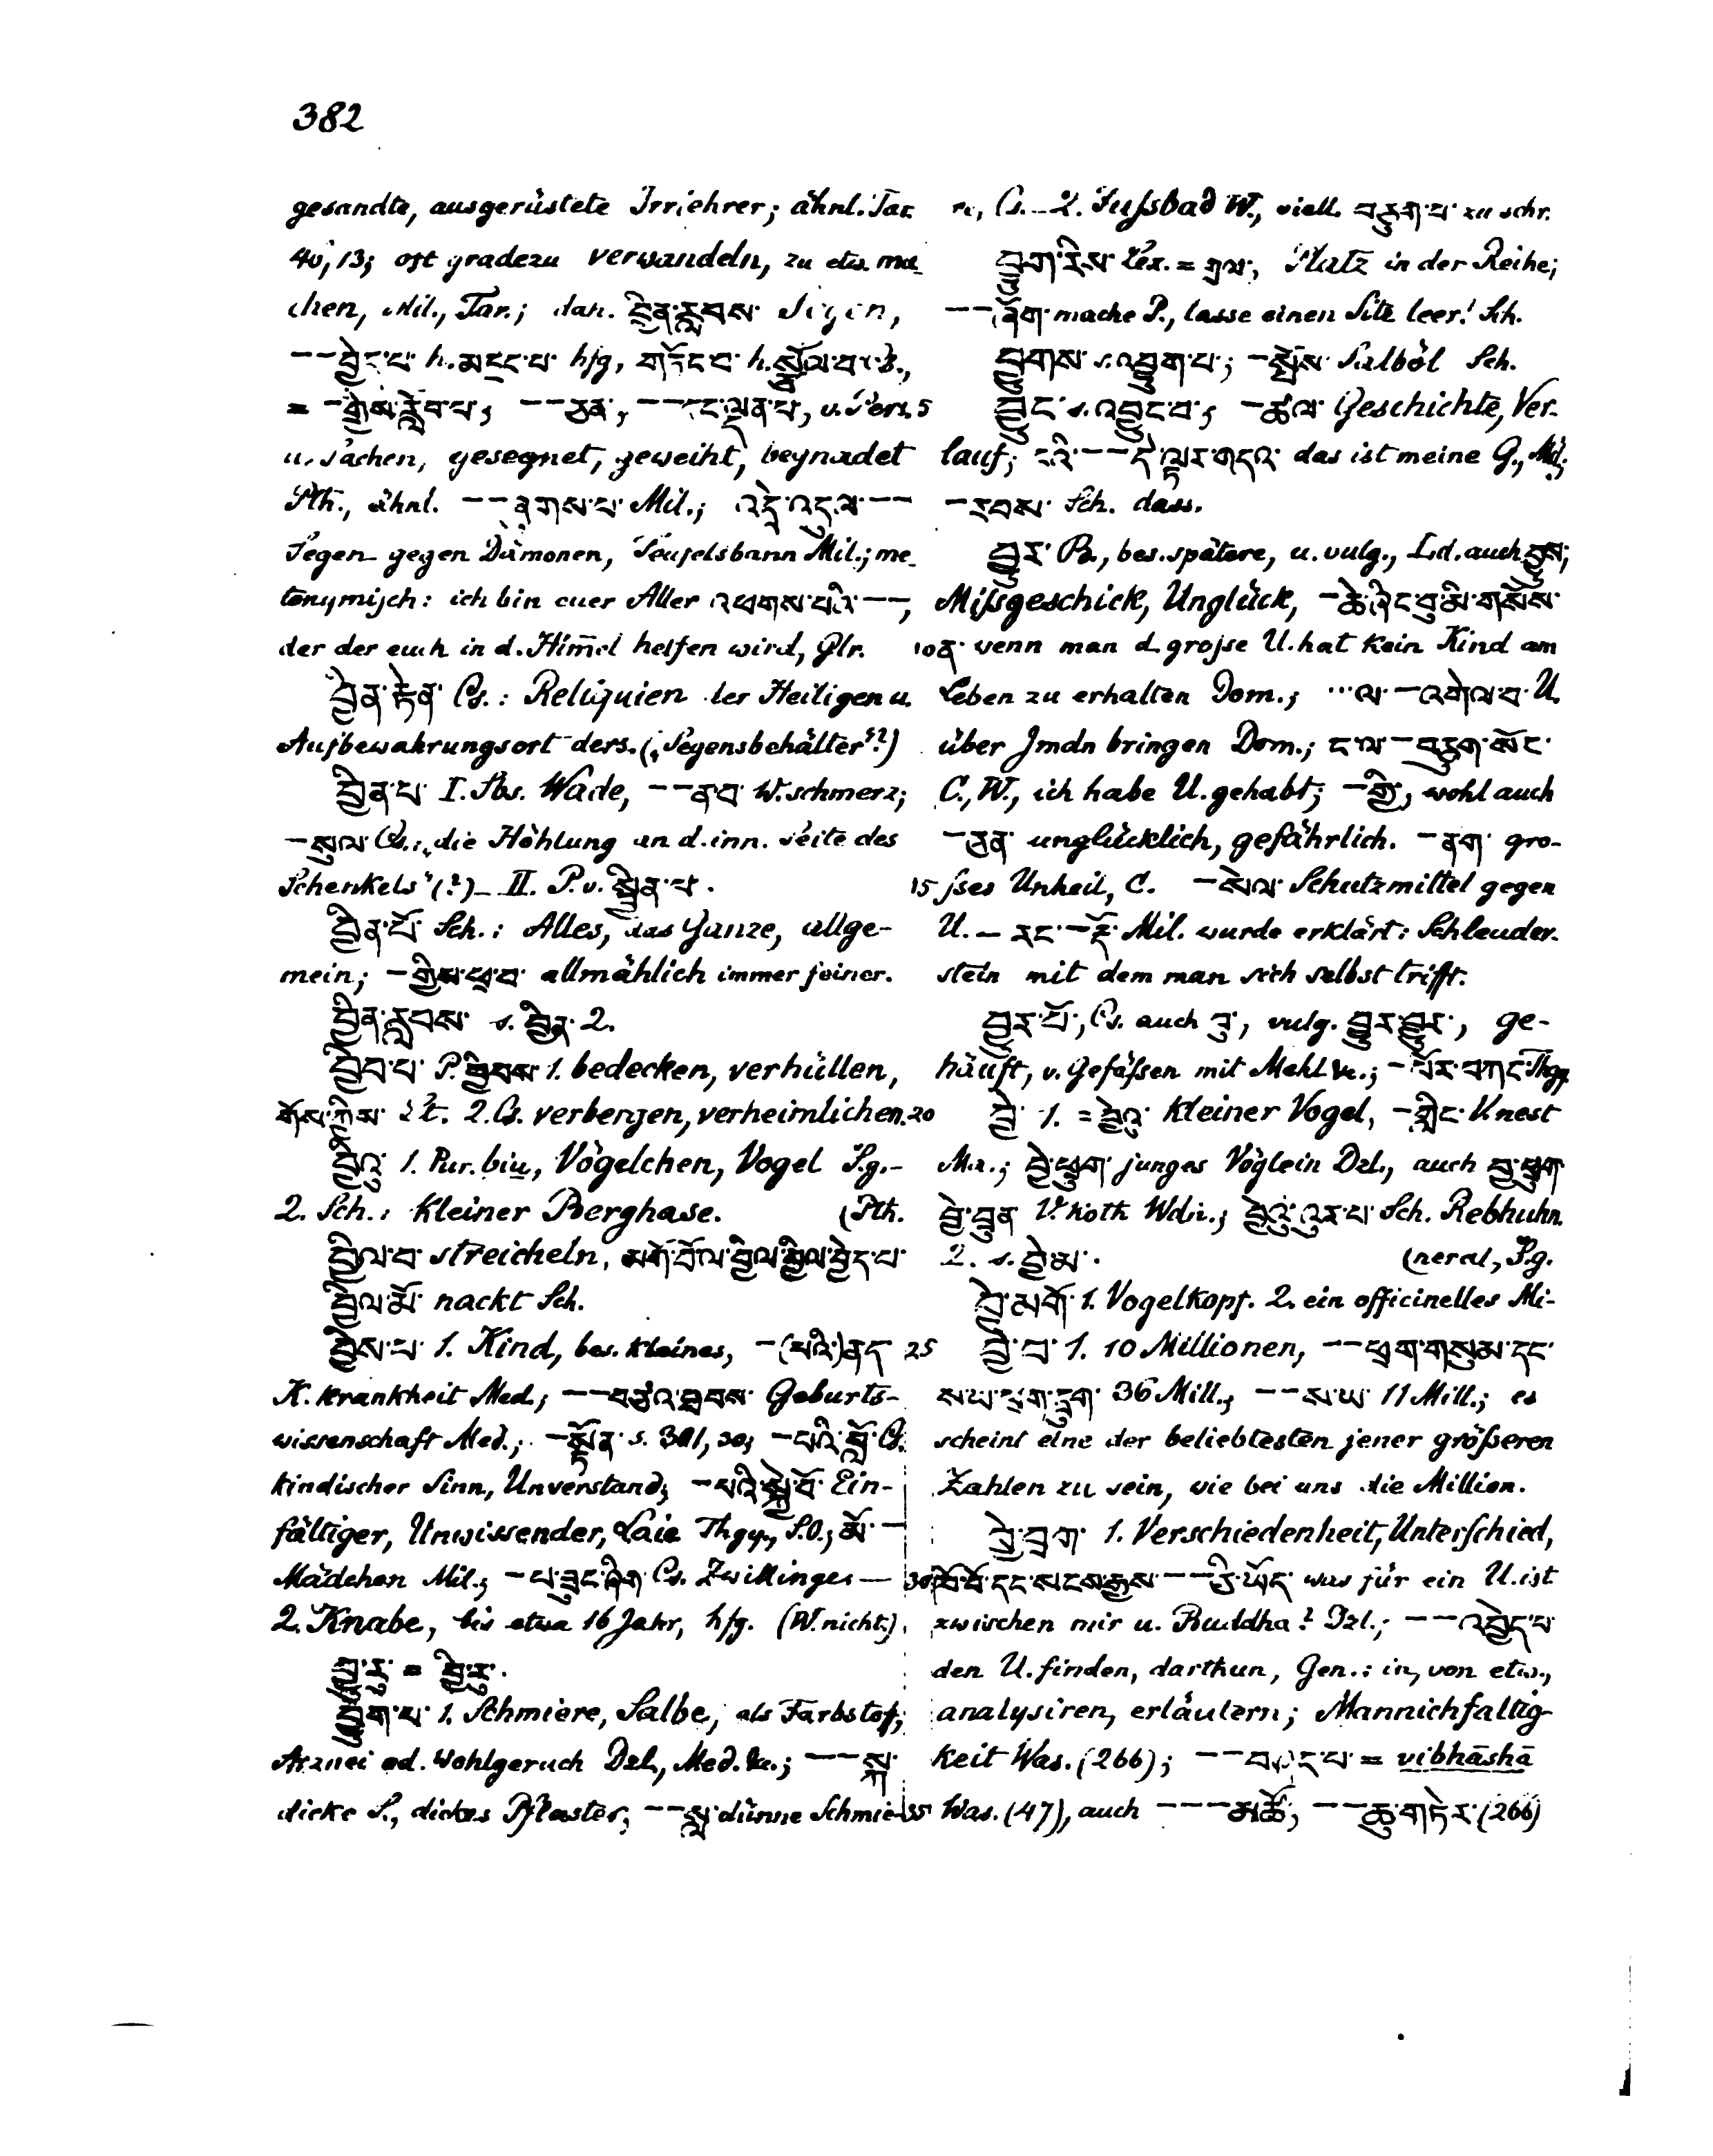 382
gesandte, ausgerüstete Irrlehrer; ähnl. Tar.
40, 13; oft gradezu verwandeln, zu etw. ma-
chen, Mil., Tar.; dah. བྱིན་རླབས་ Segen,
h. མཛད་པ་ hfg,
u. Pers.
u. Sachen, gesegnet, geweiht, begnadet
Pth., ähnl. –– Mil.; འདྲེ་འདུལ་ ––
Segen gegen Dämonen, Teufelsbann Mil.; me-
tonymisch: ich bin euer Aller འཕགས་པའི་ ––,
der der euch in d. Him̄el helfen wird, Glr.
བྱིན་རྟེན་ Cs.: Reliquien der Heiligen u.
Aufbewahrungsort ders. („Segensbehälter“?)
བྱིན་པ་ I. Sbs. Wade, ––ན་བ་ W. schmerz;
–སུལ་ Cs.: „die Höhlung an d. inn. Seite des
Schenkels“(?) – II. P. v. སྦྱིན་པ་.
བྱིན་པོ་ Sch.: Alles, das Ganze, allge-
mein; – allmählich immer feiner.
བྱིན་རླབས་ s. བྱིན་ 2.
བྱིབ་པ་ P. བྱིབས་ 1. bedecken, verhüllen,
གོས་ཀྱིས་ Lt. 2. Cs. verbergen, verheimlichen.
བྱིའུ་ 1. Pur. biu, Vögelchen, Vogel S.g. –
2. Sch.: kleiner Berghase. (Pth.
བྱིལ་བ་ streicheln, མགོ་བོལ་བྱིལ་བྱིལ་བྱེད་པ་
བྱིལ་མོ་ nackt Sch.
བྱིས་པ་ 1. Kind, bes. kleines, –(པའི་)ནད་
K. krankheit Med.; –– Geburts-
wissenschaft Med.; –སྟོན་ s. 301, 20; –པའི་བློ་ Cs.
kindischer Sinn, Unverstand; –པའི་སྐྱེ་བོ་ Ein-
fältiger, Unwissender, Laie Thgy., S.O.; མོ་ –
Mädchen Mil.; –པ་ཟུང་ཞིག་ Cs. Zwillinge. –
2. Knabe, bis etwa 16 Jahr, hfg. (W. nicht.)
བྱུ་རུ་ = བྱི་རུ་.
བྱུག་པ་ 1. Schmiere, Salbe, als Farbstoff,
Arznei od. Wohlgeruch Dzl., Med. &c.; ––སྐ་
dicke S., dickes Pflaster, ––སླ་ dünne Schmie-
re, Cs. – 2. Fußbad W., viell. བཅུག་པ་ zu schr.
བྱུག་རིས་ Lex. = གྲལ་, Platz in der Reihe;
––ཞོག་ mache P., lasse einen Sitz leer! Sch.
བྱུགས་ s. འབྱུག་པ་; –སྤོས་ Salböl Sch.
5 བྱུང་ s. འབྱུང་བ་; –ཚུལ་ Geschichte, Ver-
lauf; ངའི་ ––དེ་ལྟར་གདའ་ das ist meine G., Mil.;
–རབས་ Sch. dass.
བྱུར་ B., bes. spätere, u. vulg., Ld. auch བྱུས་;
Mißgeschick, Unglück, –ཆེ་ཞིང་བུ་མི་གསོས་
10 ན་ wenn man d. große U. hat kein Kind am
Leben zu erhalten Dom.; ...ལ་ –འགེལ་བ་ U.
über Jmdn bringen Dom.; ང་ལ་ –བརྡུག་སོང་
C., W., ich habe U. gehabt; –གྱི་, wohl auch
–ཅན་ unglücklich, gefährlich. –ནག་ gro-
15 ßes Unheil, C. –སེལ་ Schutzmittel gegen
U. – རང་ –རྡོ་ Mil. wurde erklärt: Schleuder-
stein mit dem man sich selbst trifft.
བྱུར་པོ་, Cs. auch བུ་, vulg. བྱུར་བྱུར་, ge-
häuft, v. Gefäßen mit Mehl &c.; –པོར་བཀང་ Thgy.
20 བྱེ་ 1. = བྱེའུ་ kleiner Vogel, – V.nest
Ma.; བྱེ་ཕྲུག་ junges Vöglein Dzl., auch བྱ་ཕྲུག་
བྱེ་བྲུན་ V. koth Wdn.; བྱེའུ་འུར་པ་ Sch. Rebhuhn.
2. s. བྱེ་མ་. (neral, S.g.
བྱེ་མགོ་ 1. Vogelkopf. 2. ein officinelles Mi-
25 བྱེ་བ་ 1. 10 Millionen, ––ཕྲག་གསུམ་དང་
ས་ཡ་ཕྲག་དྲུག་ 36 Mill.; ––ས་ཡ་ 11 Mill.; es
scheint eine der beliebtesten jener größeren
Zahlen zu sein, wie bei uns die Million.
བྱེ་བྲག་ 1. Verschiedenheit, Unterschied,
30 བོ་བོ་དང་སངས་རྒྱས་ ––ཅི་ཡོད་ was für ein U. ist
zwischen mir u. Buddha? Dzl.; ––འབྱེད་པ་
den U. finden, darthun, Gen.: in, von etw.,
analysiren, erläutern; Mannichfaltig-
keit Was. (266); ––བཤད་པ་ = vibhāshā
35 Was. (47), auch –––མཚོ་, ––ཆུ་གཏེར་ (266)